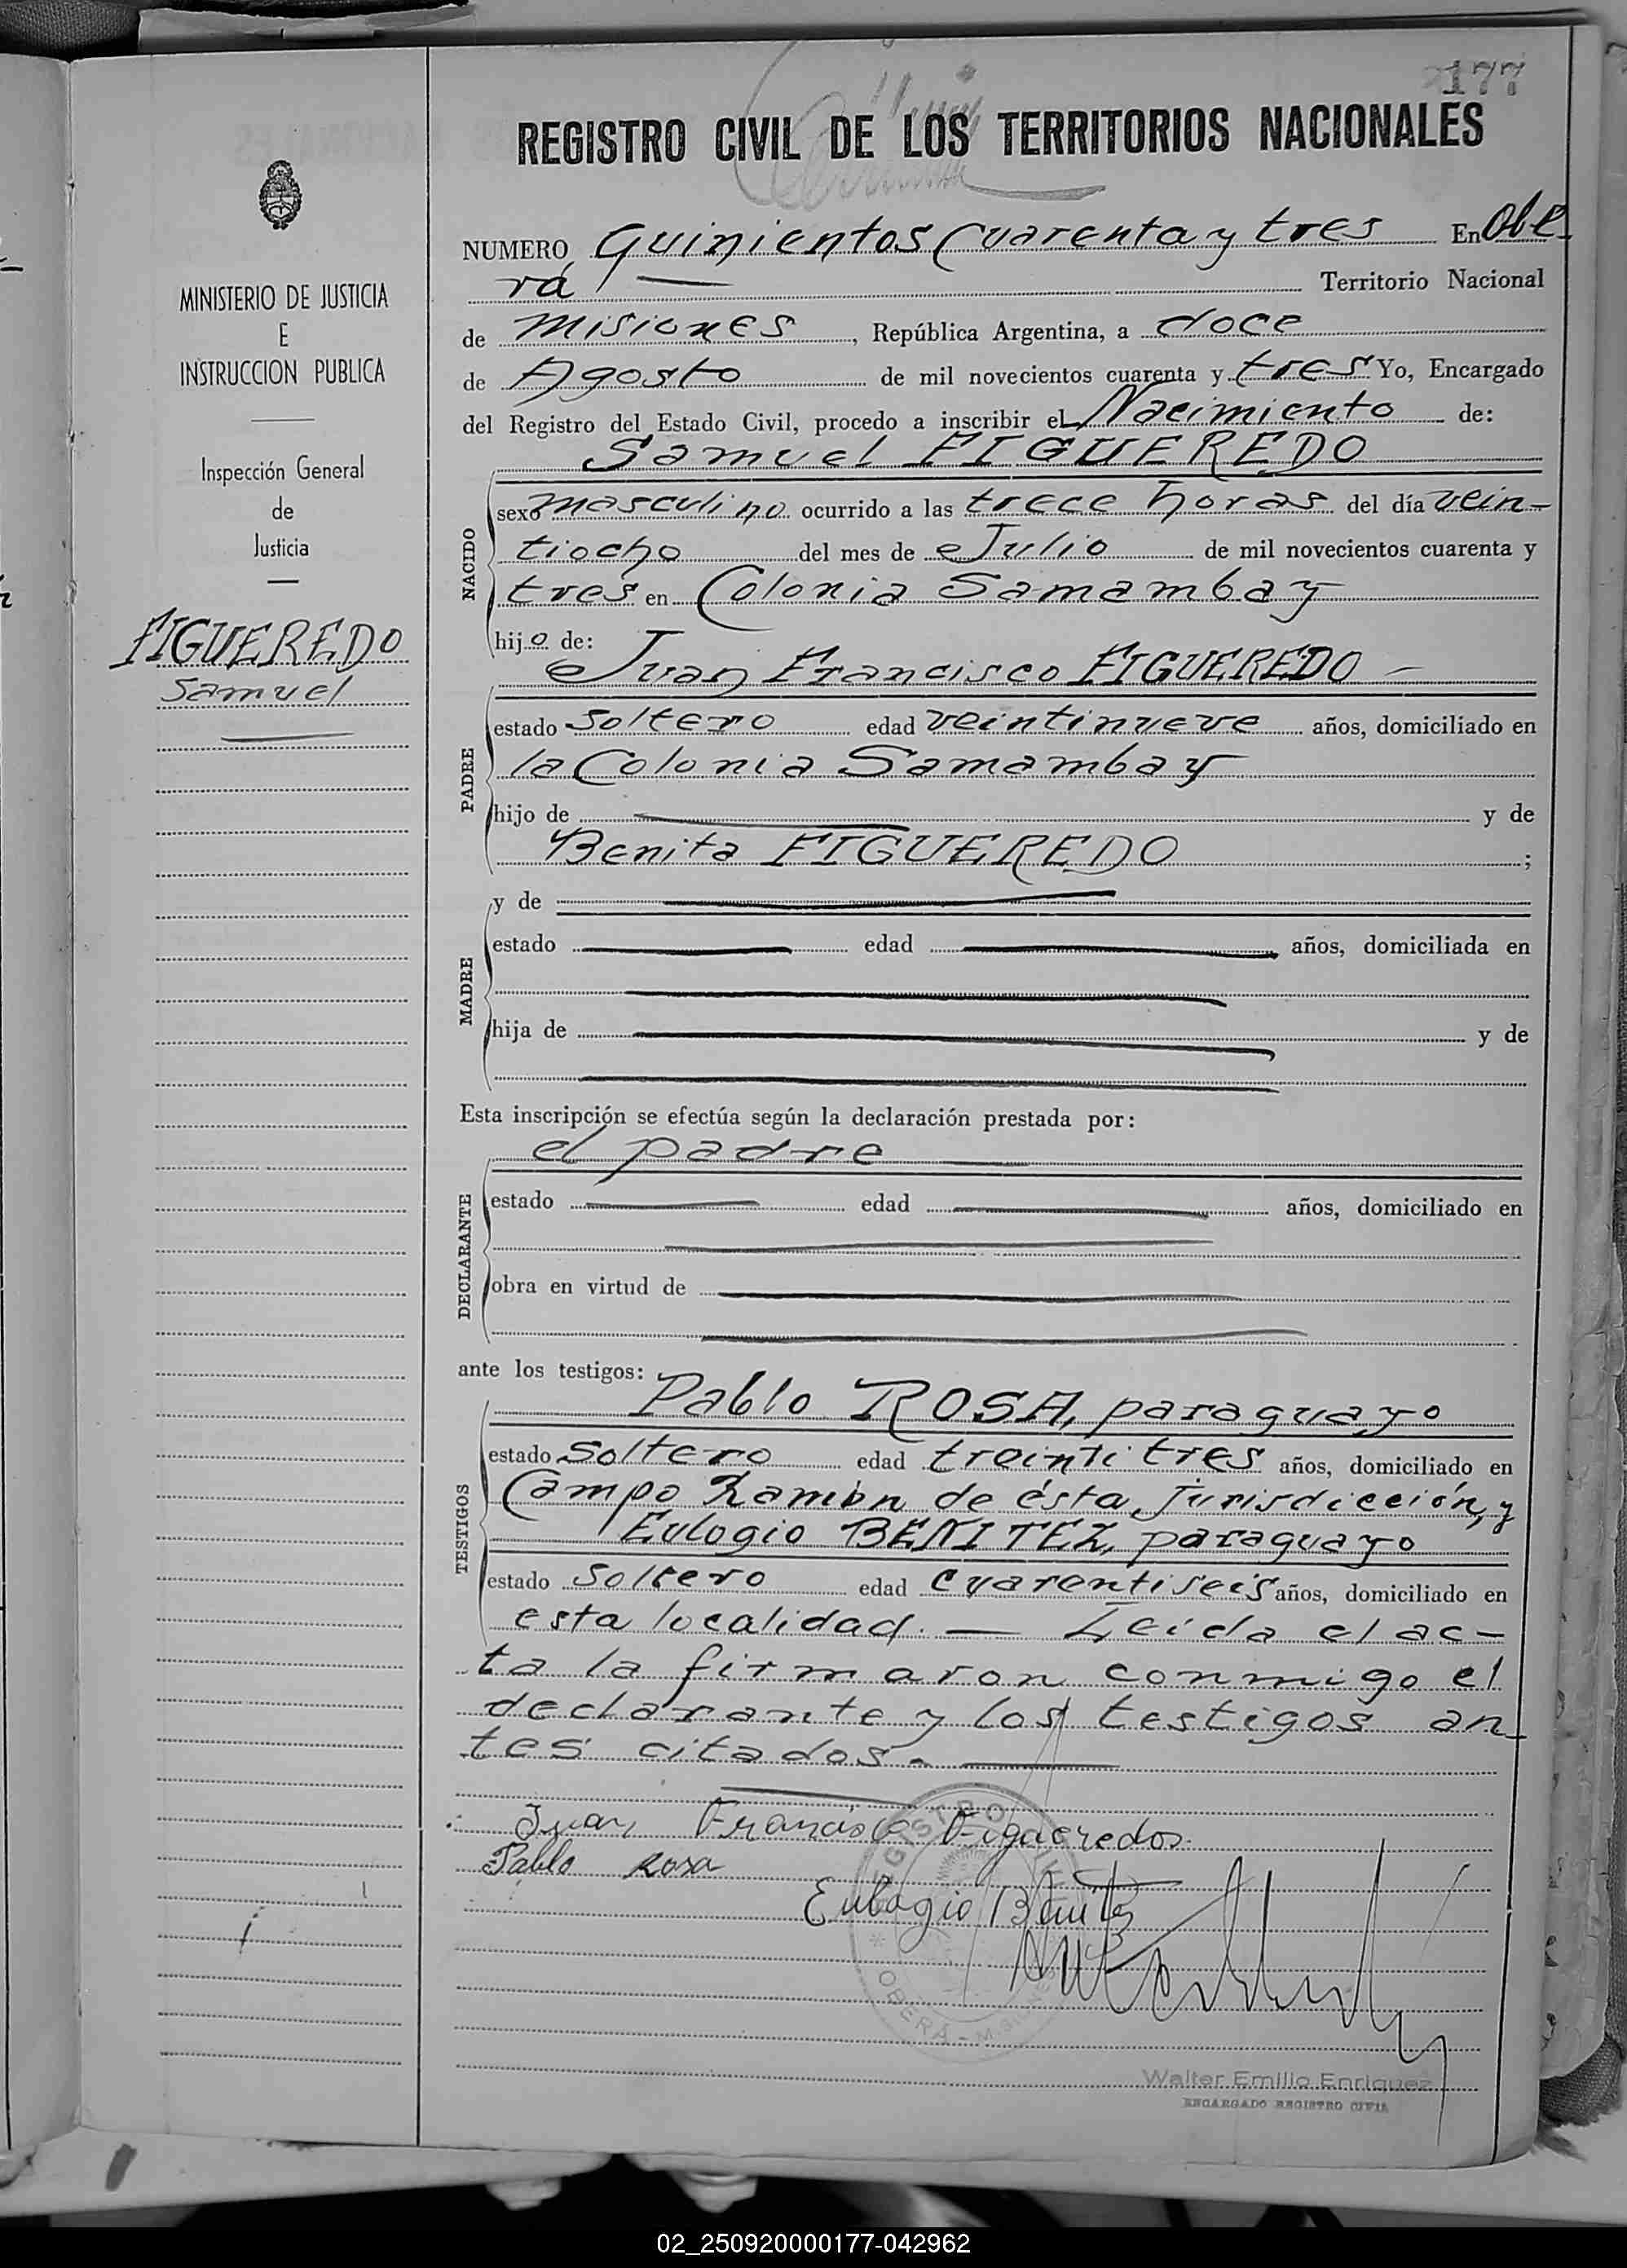 177
REGISTRO CIVIL DE LOS TERRITORIOS NACIONALES
MINISTERIO DE JUSTICIA
E
INSTRUCCION PUBLICA
Inspección General
de
Justicia
FIGUEREDO
Samuel
NUMERO Quinientos Cuarenta y tres En Obe-
rá Territorio Nacional
de Misiones, República Argentina, a doce
de Agosto de mil novecientos cuarenta y tres Yo, Encargado
del Registro del Estado Civil, procedo a inscribir el Nacimiento de:
Samuel FIGUEREDO
NACIDO
sexo masculino ocurrido a las trece horas del día vein-
tiocho del mes de Julio de mil novecientos cuarenta y
tres en Colonia Samambay
hijo de:
Juan Francisco FIGUEREDO
PADRE
estado soltero edad veintinueve años, domiciliado en
la Colonia Samambay
hijo de y de
Benita FIGUEREDO ;
MADRE
y de
estado edad años, domiciliada en
hija de y de
Esta inscripción se efectúa según la declaración prestada por:
el padre
DECLARANTE
estado edad años, domiciliado en
obra en virtud de
ante los testigos:
Pablo ROSA, paraguayo
TESTIGOS
estado soltero edad treintitres años, domiciliado en
Campo Ramón de ésta, jurisdicción, y
Eulogio BENITEZ, paraguayo
estado soltero edad cuarentiseis años, domiciliado en
esta localidad. — Leída el ac-
ta la firmaron conmigo el
declarante y los testigos an-
tes citados.-
Juan Francisco Figueredos
Pablo Rosa
Eulogio Benitez
REGISTRO CIVIL
OBERÁ - MISIONES
Walter Emilio Enriquez
ENCARGADO REGISTRO CIVIL
02_250920000177-042962